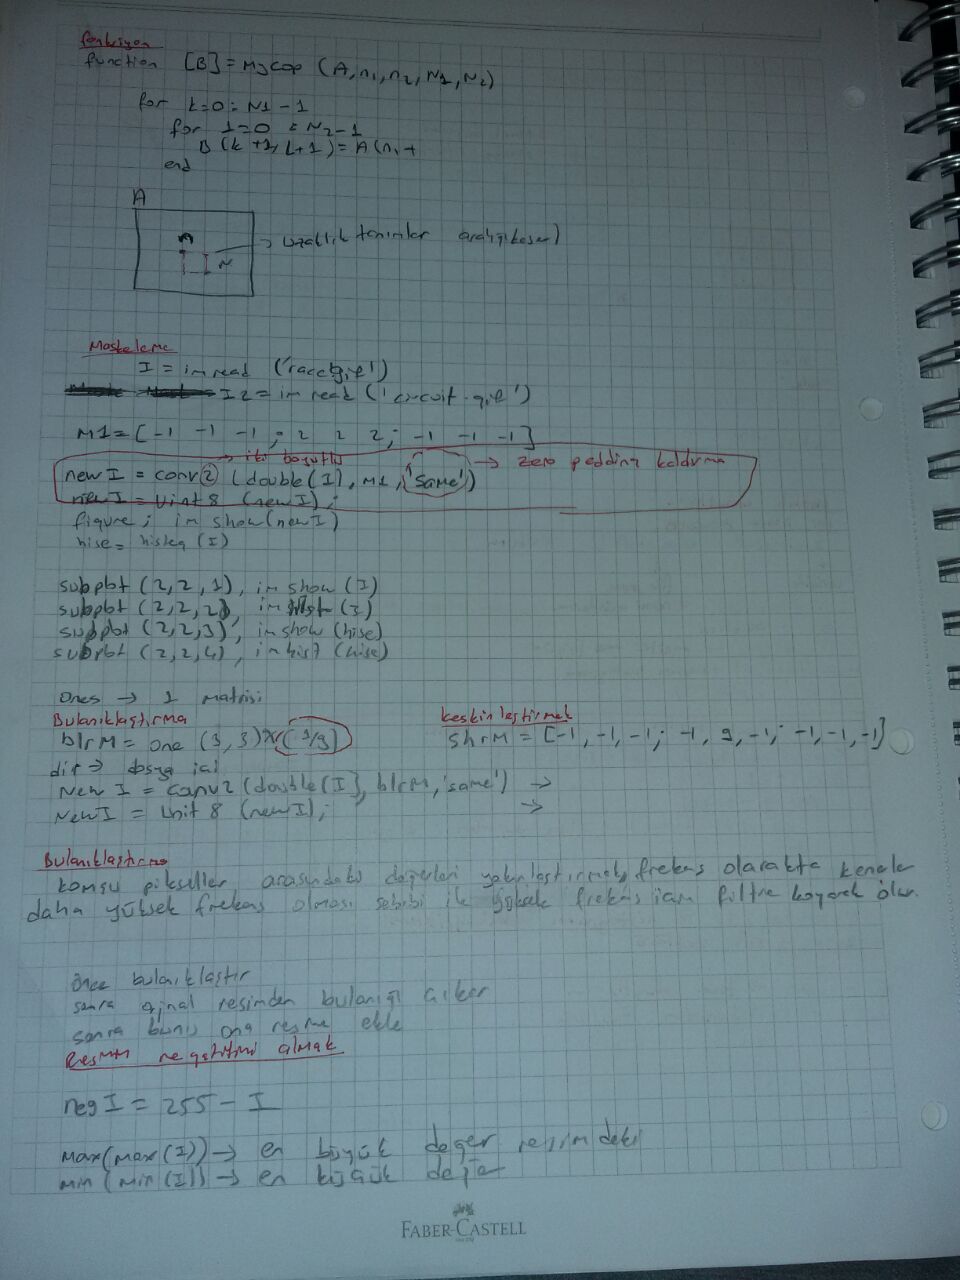 fonksiyon
function [B] = Mycop (A, n1, n2, N1, N2)
for k=0:N1-1
for l=0:N2-1
B(k+1, l+1) = A(n1+
end
A
n
N
→ uzaklık tanımlar
Maskeleme
I = imread (
I2 = imread ('circuit.gif')
M1=[-1 -1 -1 ; 2 2 2; -1 -1 -1]
→ iki boyutlu
→ zero padding kaldırma
new I = conv2 (double(I), M1, 'same')
new I = uint8 (new I);
figure; imshow(newI)
hise= histeq (I)
subplot (2,2,1), imshow (I)
subplot (2,2,2), imhist (I)
subplot (2,2,3), imshow (hise)
subplot (2,2,4), imhist (hise)
Ones → 1 matrisi
Bulanıklaştırma
keskinleştirmek
blrM = one (3,3)*(1/9)
shrM = [-1,-1,-1; -1, 9, -1; -1,-1,-1]
New I = conv2 (double(I), blrM, 'same') →
New I = unit 8 (newI); →
Bulanıklaştırma
komşu pikseller arasındaki değerleri yakınlaştırmak, frekans olarakta kenarlar
daha yüksek frekans olması sebibi ile yüksek frekans için filtre koyarak olur.
önce bulanıklaştır
sonra orjinal resimden bulanığı çıkar
sonra bunu ana resme ekle
Resmin negatifini almak
neg I = 255 - I
max(max(I)) → en büyük değer resimdeki
min (min(I)) → en küçük değer
FABER-CASTELL